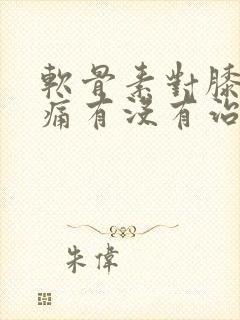 軟骨素對膝
痛有沒有治
朱偉